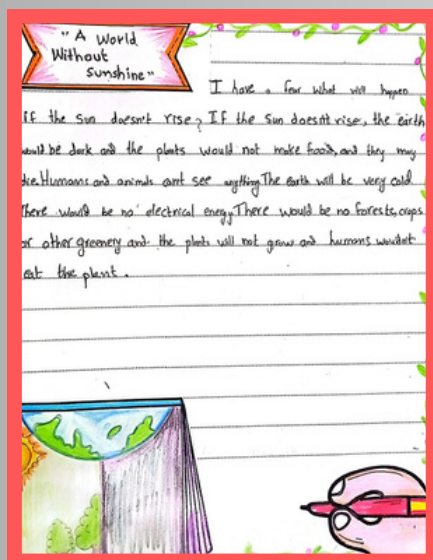 "A World
Without
Sunshine"
I have a fear what will happen
if the sun doesn't rise? If the sun doesn't rise, the earth
would be dark and the plants would not make food, and they may
die. Humans and animals can't see anything The earth will be very cold
There would be no electrical energy. There would be no forests, crops
or other greenery and the plants will not grow and humans wouldn't
eat the plant.